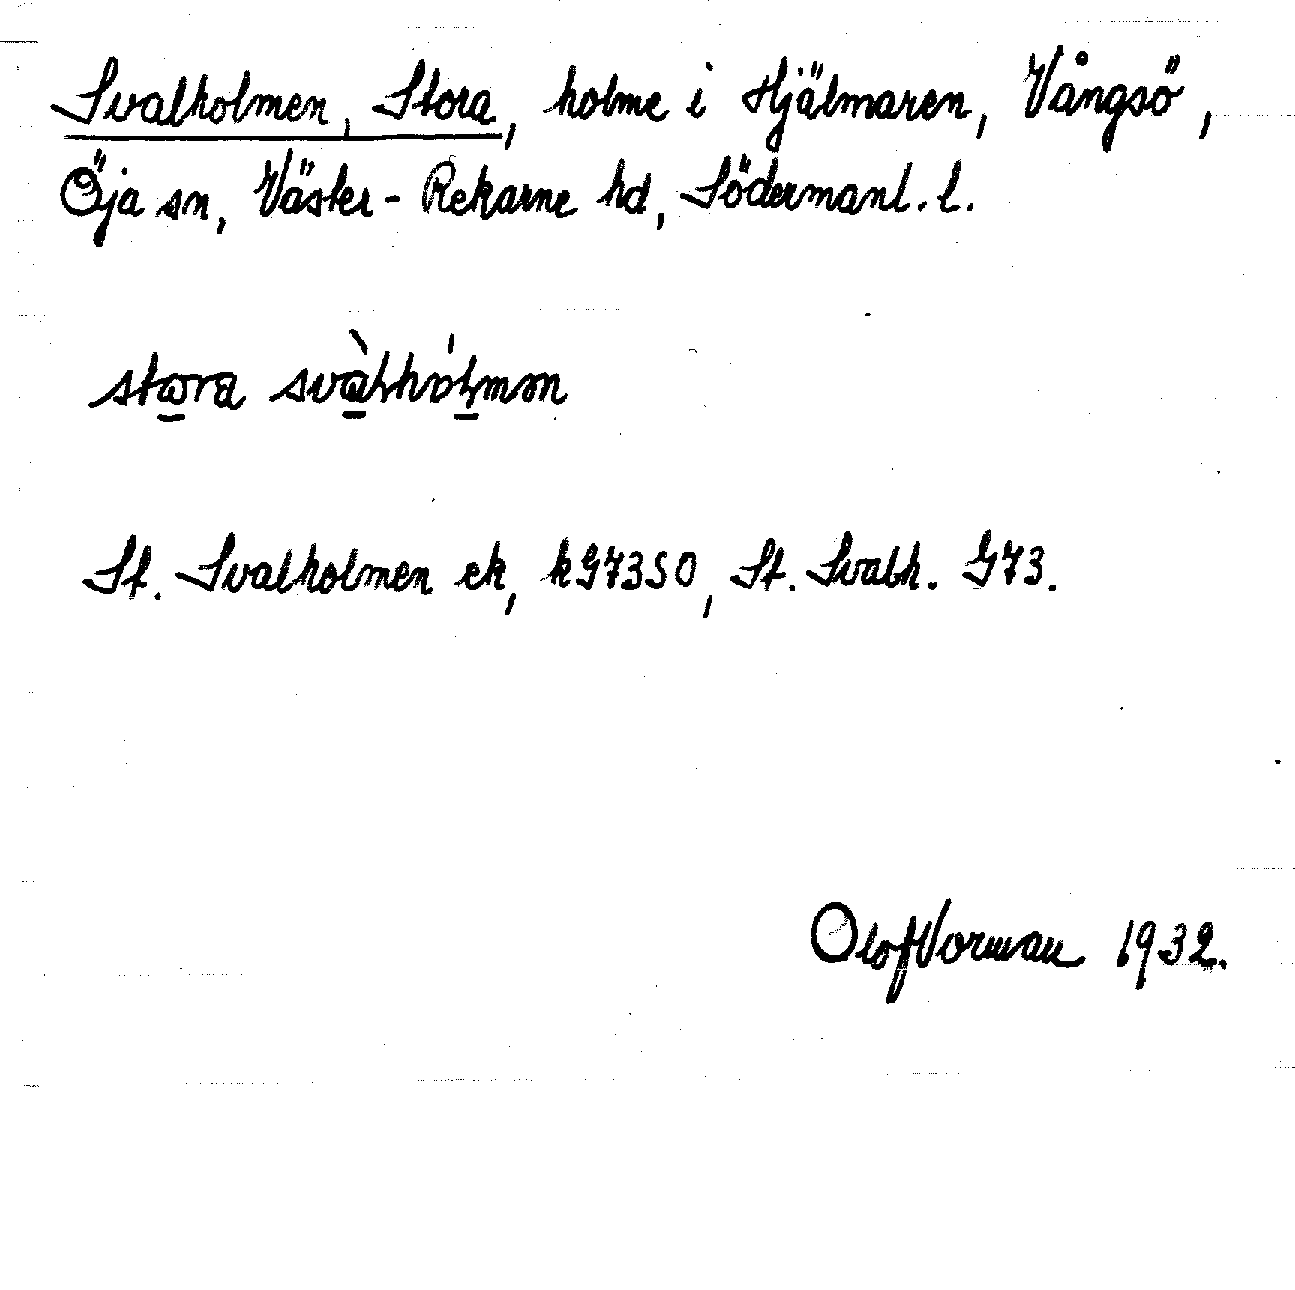 Svalholmen, Stora, holme i Hjälmaren, Vångsö,
Öja sn, Väster-Rekarne hd, Södermanl. l.
stωra svàlhólmən
St. Svalholmen ek, kG73SO, St. Svalh. G73.
Olof Vorman 1932.